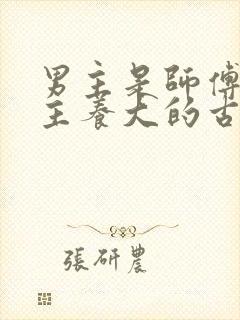 男主是師傅
主養大的古
張研農